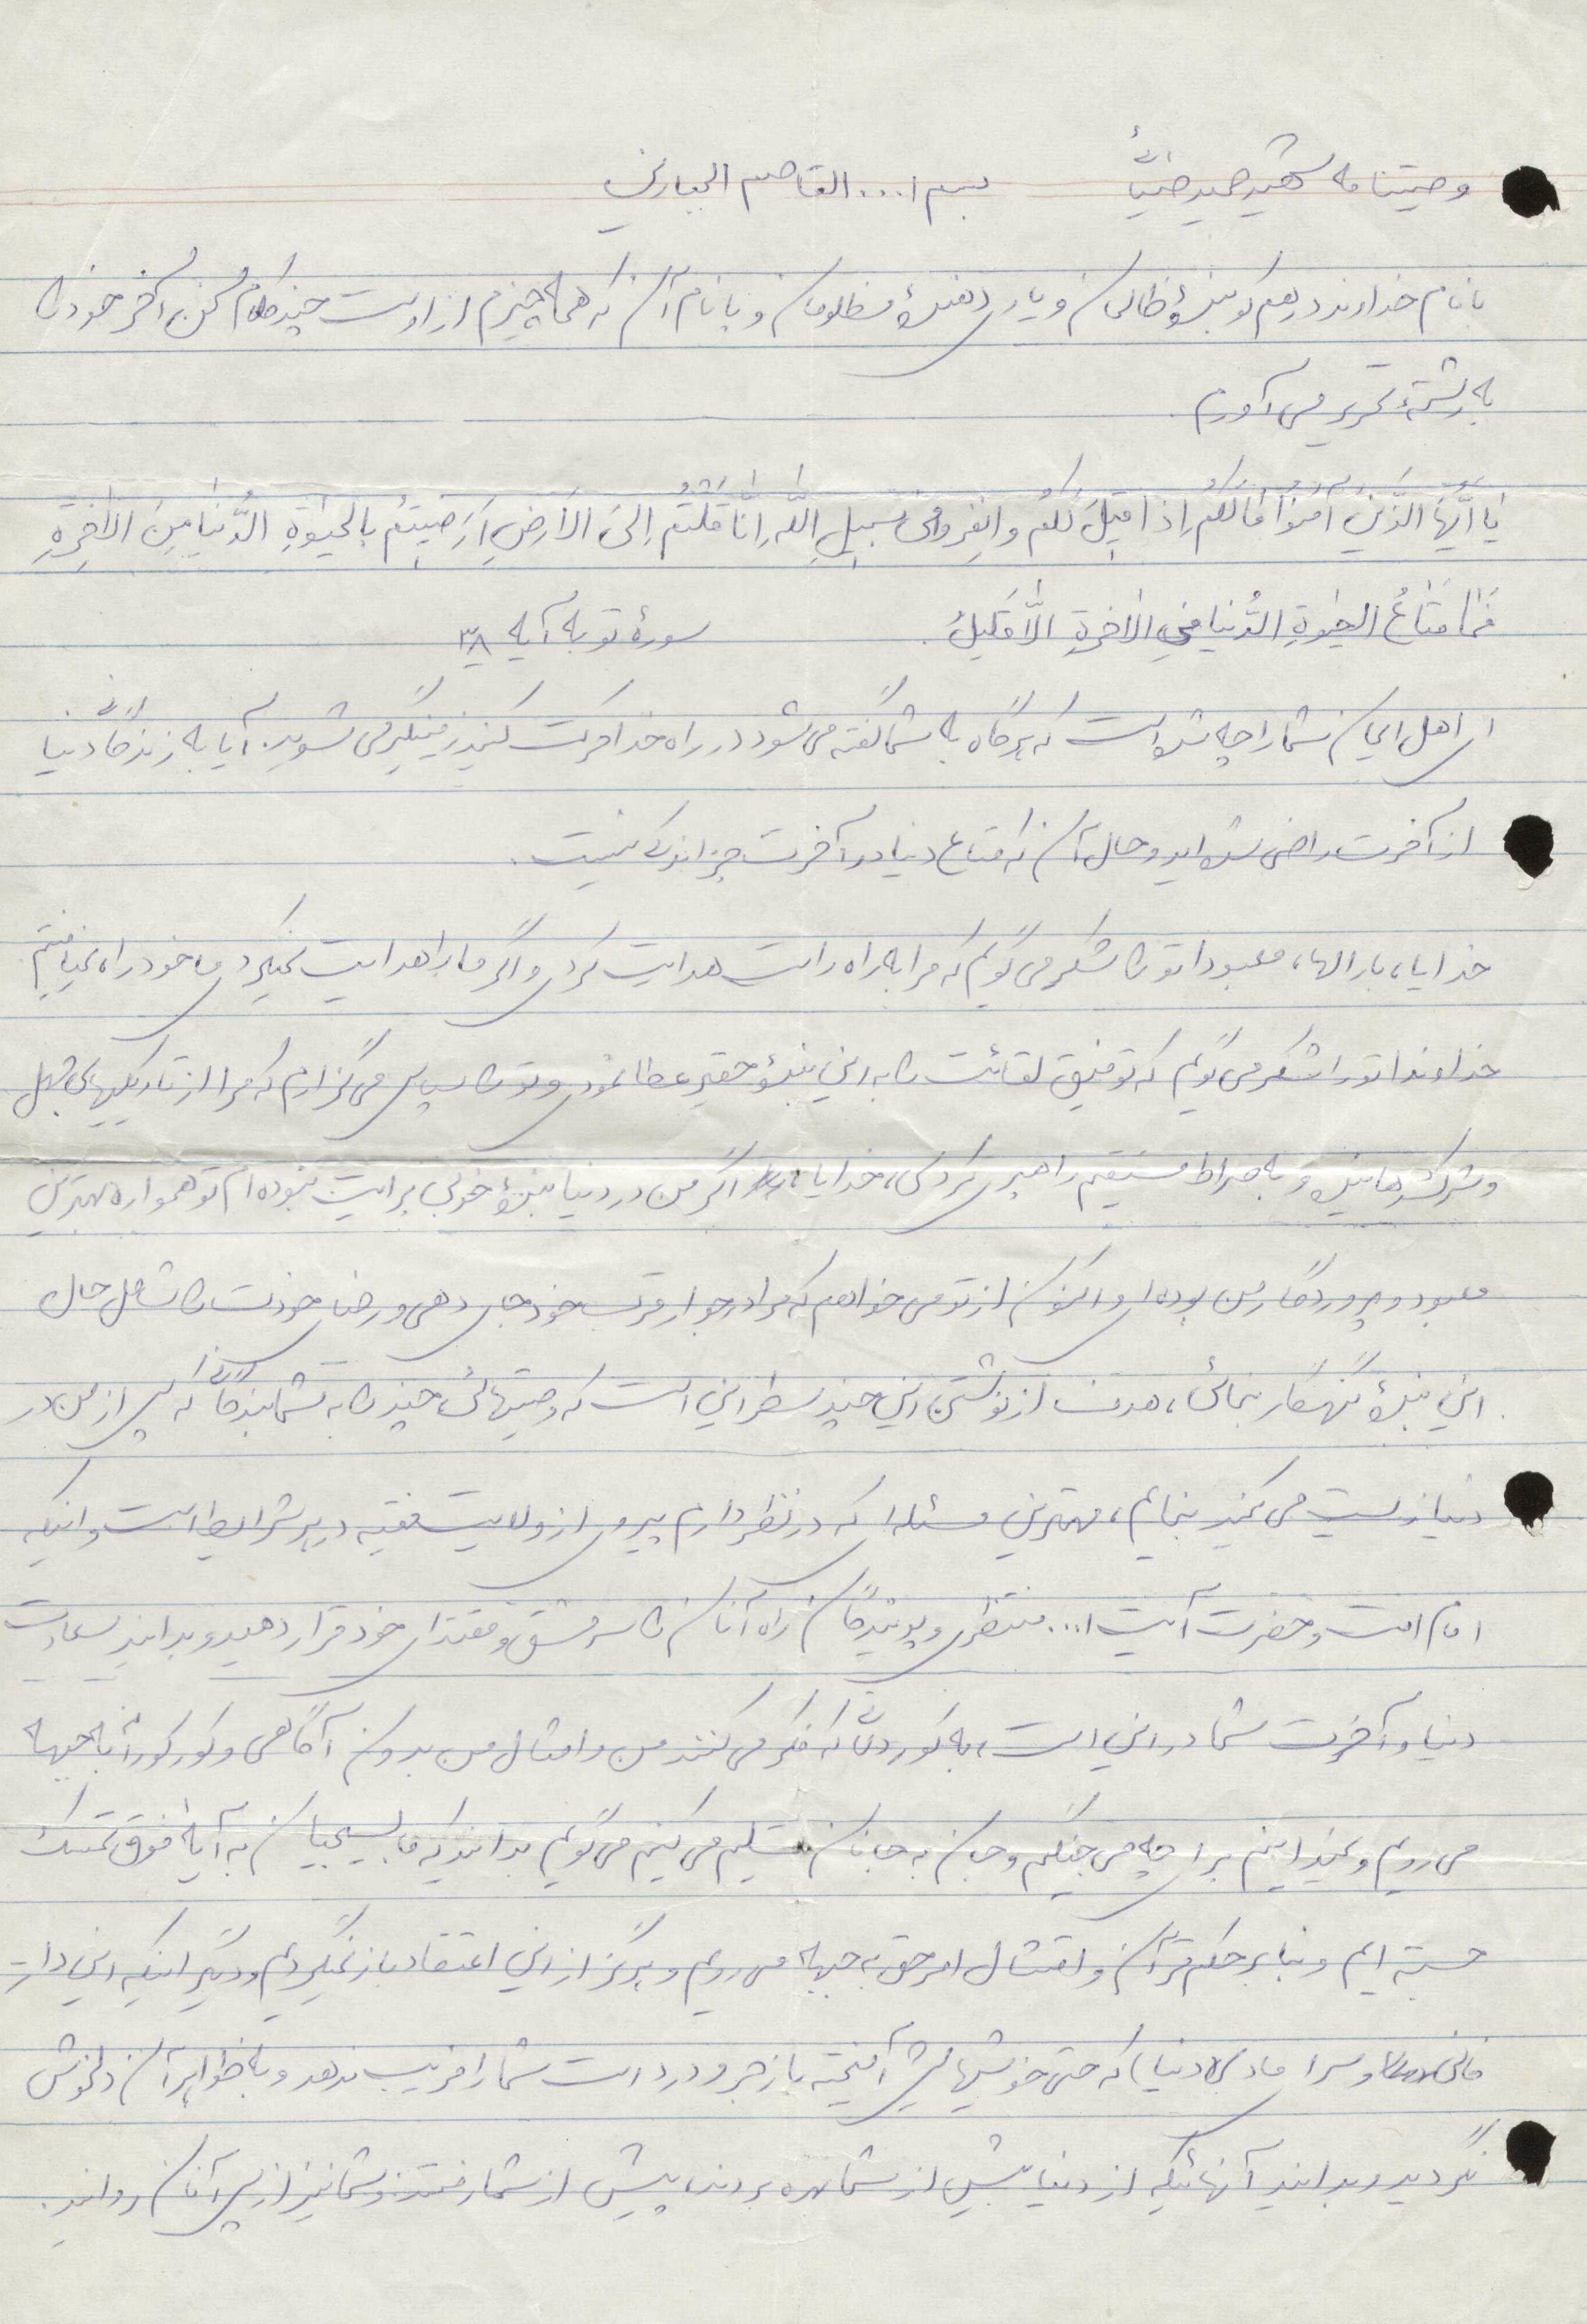 وصیتنامه شهید حمید ضیائی بسم ا... القاصم الجبارین
بنام خداوند درهم کوبندۀ ظالمان و یاری دهندۀ مظلومان و با نام آن که همه چیزم از اوست چند کلام سخن آخر خود را
به رشتۀ تحریر می آورم.
یا اَیُّهَا الَّذینَ آمَنوُا مٰالَکُم اِذا قیلَ لَکُم وانفِروُا فی سَبیلِ اللّٰهِ اثّٰاقَلتُم اِلیَ الاَرضِ اَرَضیتُم بِالحَیٰوةِ الدُّنیٰا مِنَ الاٰخِرَةِ
فَمٰا مَتٰاعُ الحیٰوةِ الدُّنیا فِی الاٰخرةِ اِلّٰا قَلیلُ. سورۀ توبه آیه ۳۸
ای اهل ایمان شما را چه شده است که هرگاه به شما گفته می شود در راه خدا حرکت کنید زمینگیر می شوید. آیا به زندگانی دنیا
از آخرت راضی شده اید و حال آن که متاع دنیا در آخرت جز اندکی نیست.
خدایا، بارالها، معبودا تو را شکر می گویم که مرا به راه راست هدایت کردی و اگر ما را هدایت نمیکردی ما خود راه نمی یافتیم
خداوندا تو را شکر می گویم که توفیق لقائت را به این بندۀ حقیر عطا نمودی و تو را سپاس می گزارم که مرا از تاریکیهای جهل
و شرک رهانیده و به صراط مستقیم راهبری کردی، خدایا اگر من در دنیا بندۀ خوبی برایت نبوده ام تو همواره بهترین
معبود و پروردگار من بوده ای و اکنون از تو می خواهم که مرا در جوار قرب خود جای دهی و رضای خودت را شامل حال
این بندۀ گنهکار بنمائی، هدف از نوشتن این چند سطر این است که وصیتهائی چند را به شما بندگانی که پس از من در
دنیا زیست می کنید بنمایم، مهمترین مسئله ای که در نظر دارم پیروی از ولایت فقیه در هر شرایط است و اینکه
امام امت و حضرت آیت ا... منتظری و پویندگان راه آنان را سرمشق و مقتدای خود قرار دهید و بدانید سعادت
دنیا و آخرت شما در این است، به کوردلانی که فکر می کنند من و امثال من بدون آگاهی و کورکورانه به جبهه
می رویم و نمیدانیم برای چه می جنگیم و جان به جانان تسلیم می کنیم می گویم بدانند که ما بسیجیان به آیۀ فوق تمسک
جسته ایم و بنا بر حکم قرآن و امتثال امر حق به جبهه می رویم و هرگز از این اعتقاد باز نمیگردیم و دیگر اینکه این دار
فانی و سرای مادی (دنیا) که حتی خوشیهایش آمیخته با زجر و درد است شما را فریب ندهد و به ظواهر آن دلخوش
نگردید و بدانید آنهائیکه از دنیا بیش از شما بهره بردند، پیش از شما رفتند و شما نیز از پس آنان روانید.